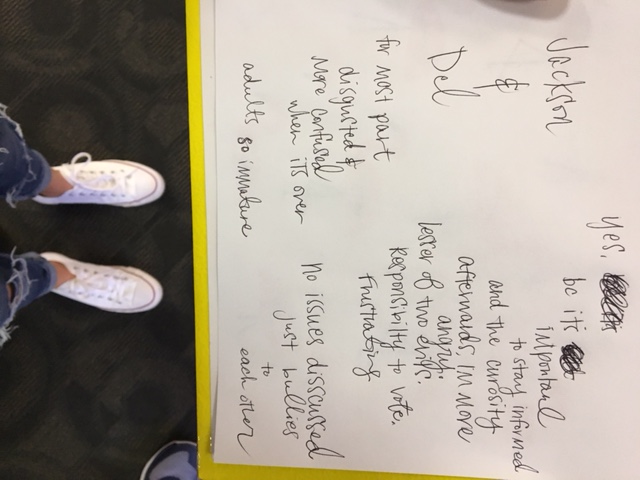 Jackson
&
Del
yes,
bc its
important
to stay informed
and the curosity
afterwards, im more
angry.
lesser of two evils.
Responsibilty to vote.
frustrating
for most part
disgusted &
More confused
when its over
adults so immature
No issues disscussed
just bullies
to
each other